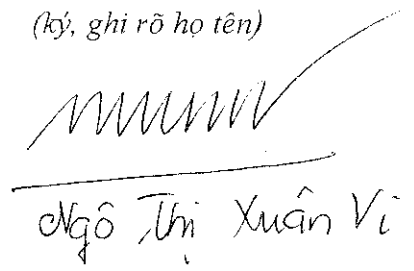 (ký, ghi rõ họ tên)
Ngô Thị Xuân Vi